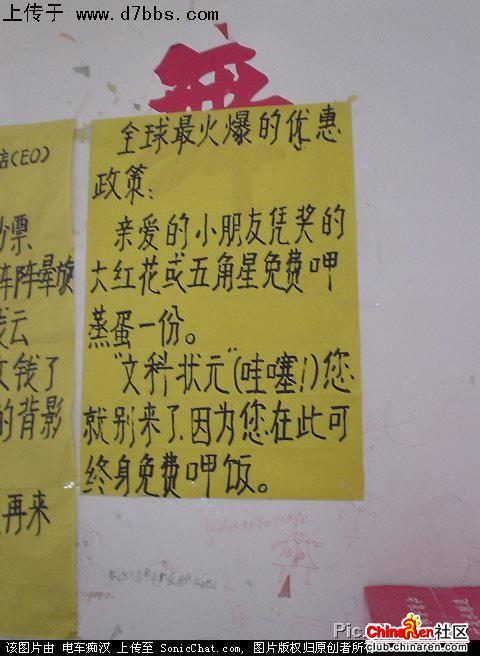 上传于 www.d7bbs.com
全球最火爆的优惠
政策：
亲爱的小朋友凭奖的
大红花或五角星免费呷
蒸蛋一份。
"文科状元"(哇噻!)您
就别来了.因为您在此可
终身免费呷饭。
店(CEO)
钞票
阵阵晕旋
钱云
文钱了
的背影
再来
Pic.
ChinaRen社区
club.chinaren.com
该图片由 电车痴汉 上传至 SonicChat.com，图片版权归原创者所有